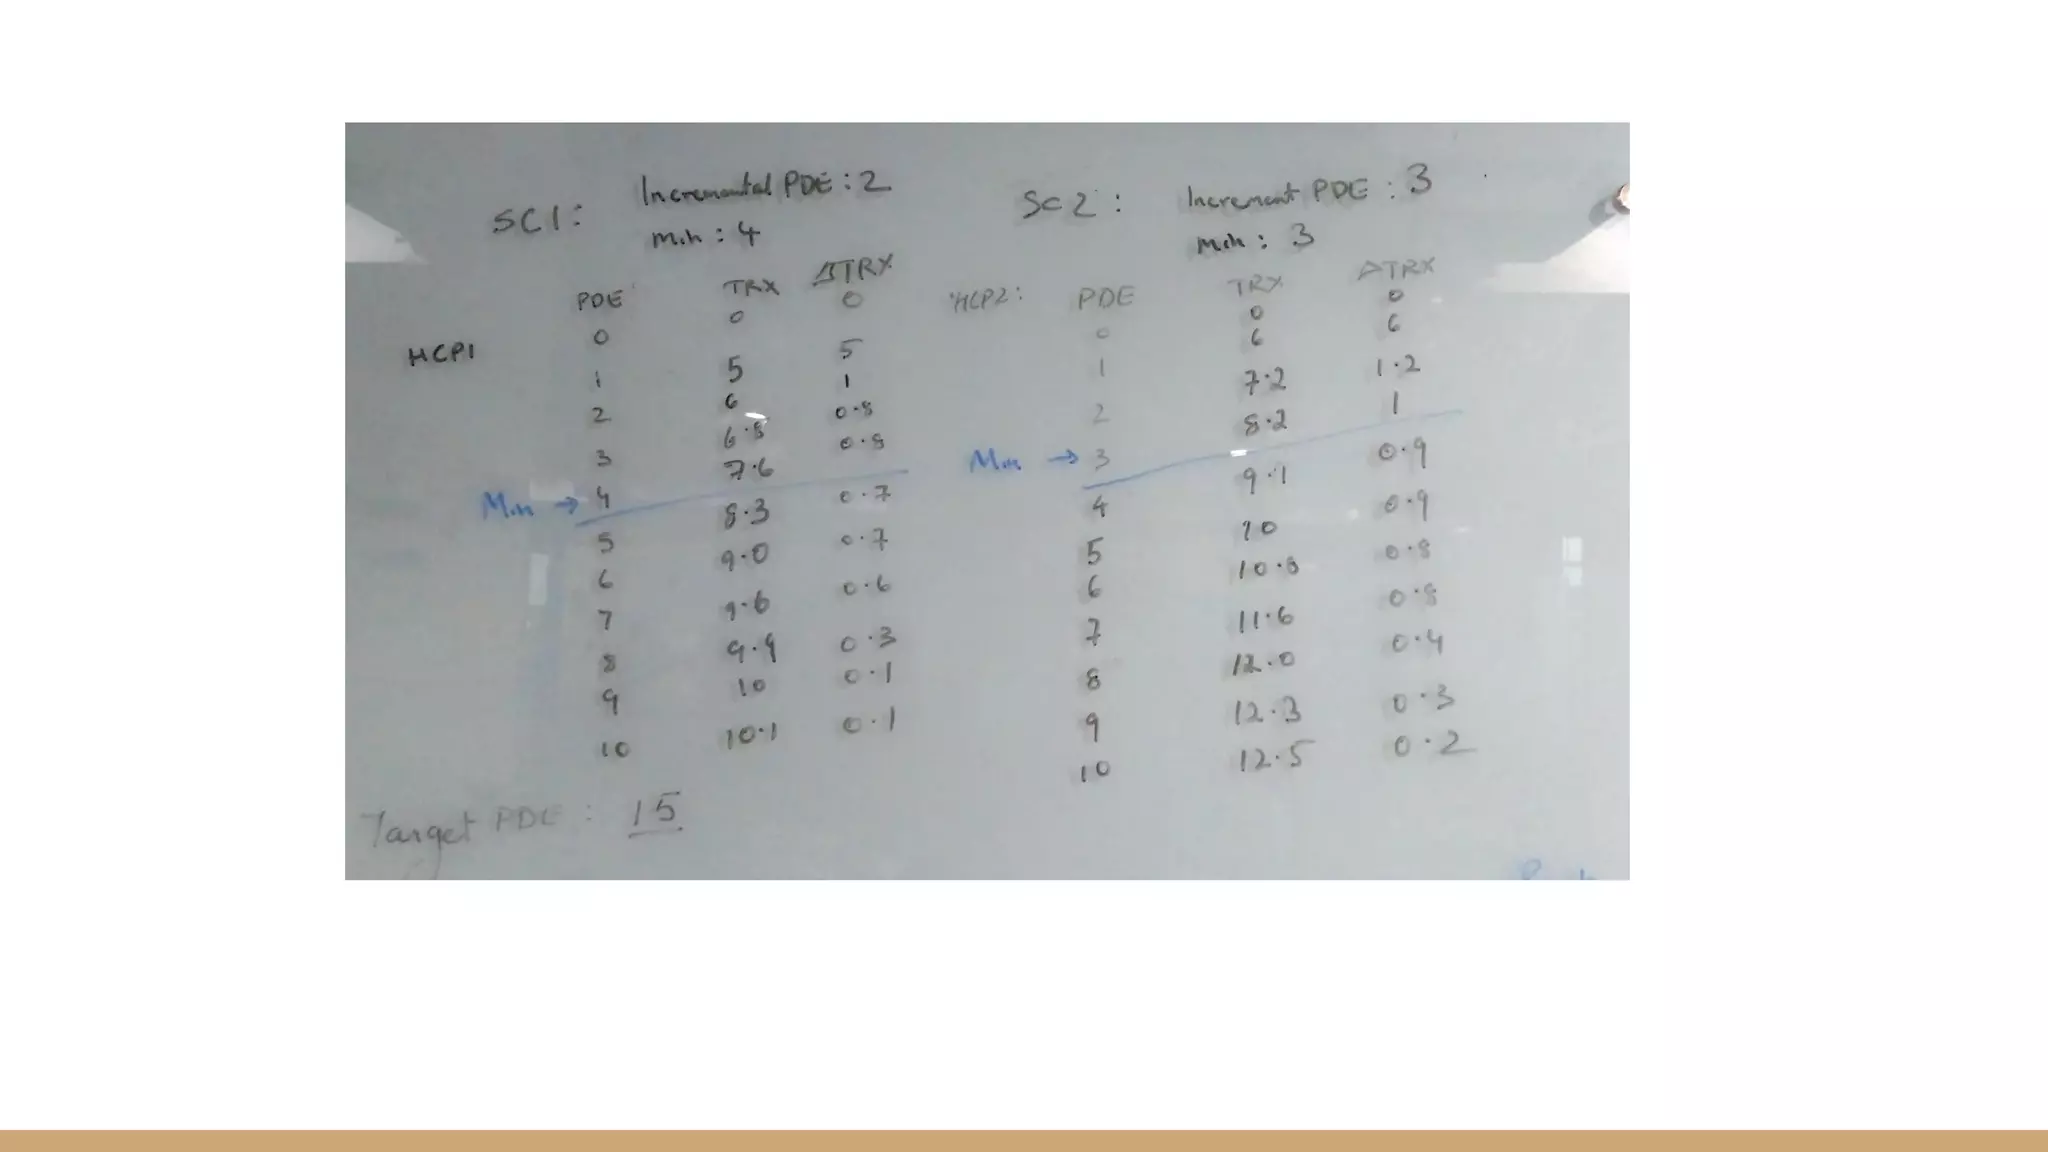 SC1: Incremental PDE : 2
Min : 4
SC2 : Increment PDE : 3
Min : 3
HCP1
PDE TRX ΔTRX
0 0 0
1 5 5
2 6 1
3 6.8 0.8
4 7.6 0.8
Min →
5 8.3 0.7
6 9.0 0.7
7 9.6 0.6
8 9.9 0.3
9 10 0.1
10 10.1 0.1
HCP2:
PDE TRX ΔTRX
0 0 0
1 6 6
2 7.2 1.2
3 8.2 1
Min →
4 9.1 0.9
5 10 0.9
6 10.8 0.8
7 11.6 0.8
8 12.0 0.4
9 12.3 0.3
10 12.5 0.2
Target PDE : 15